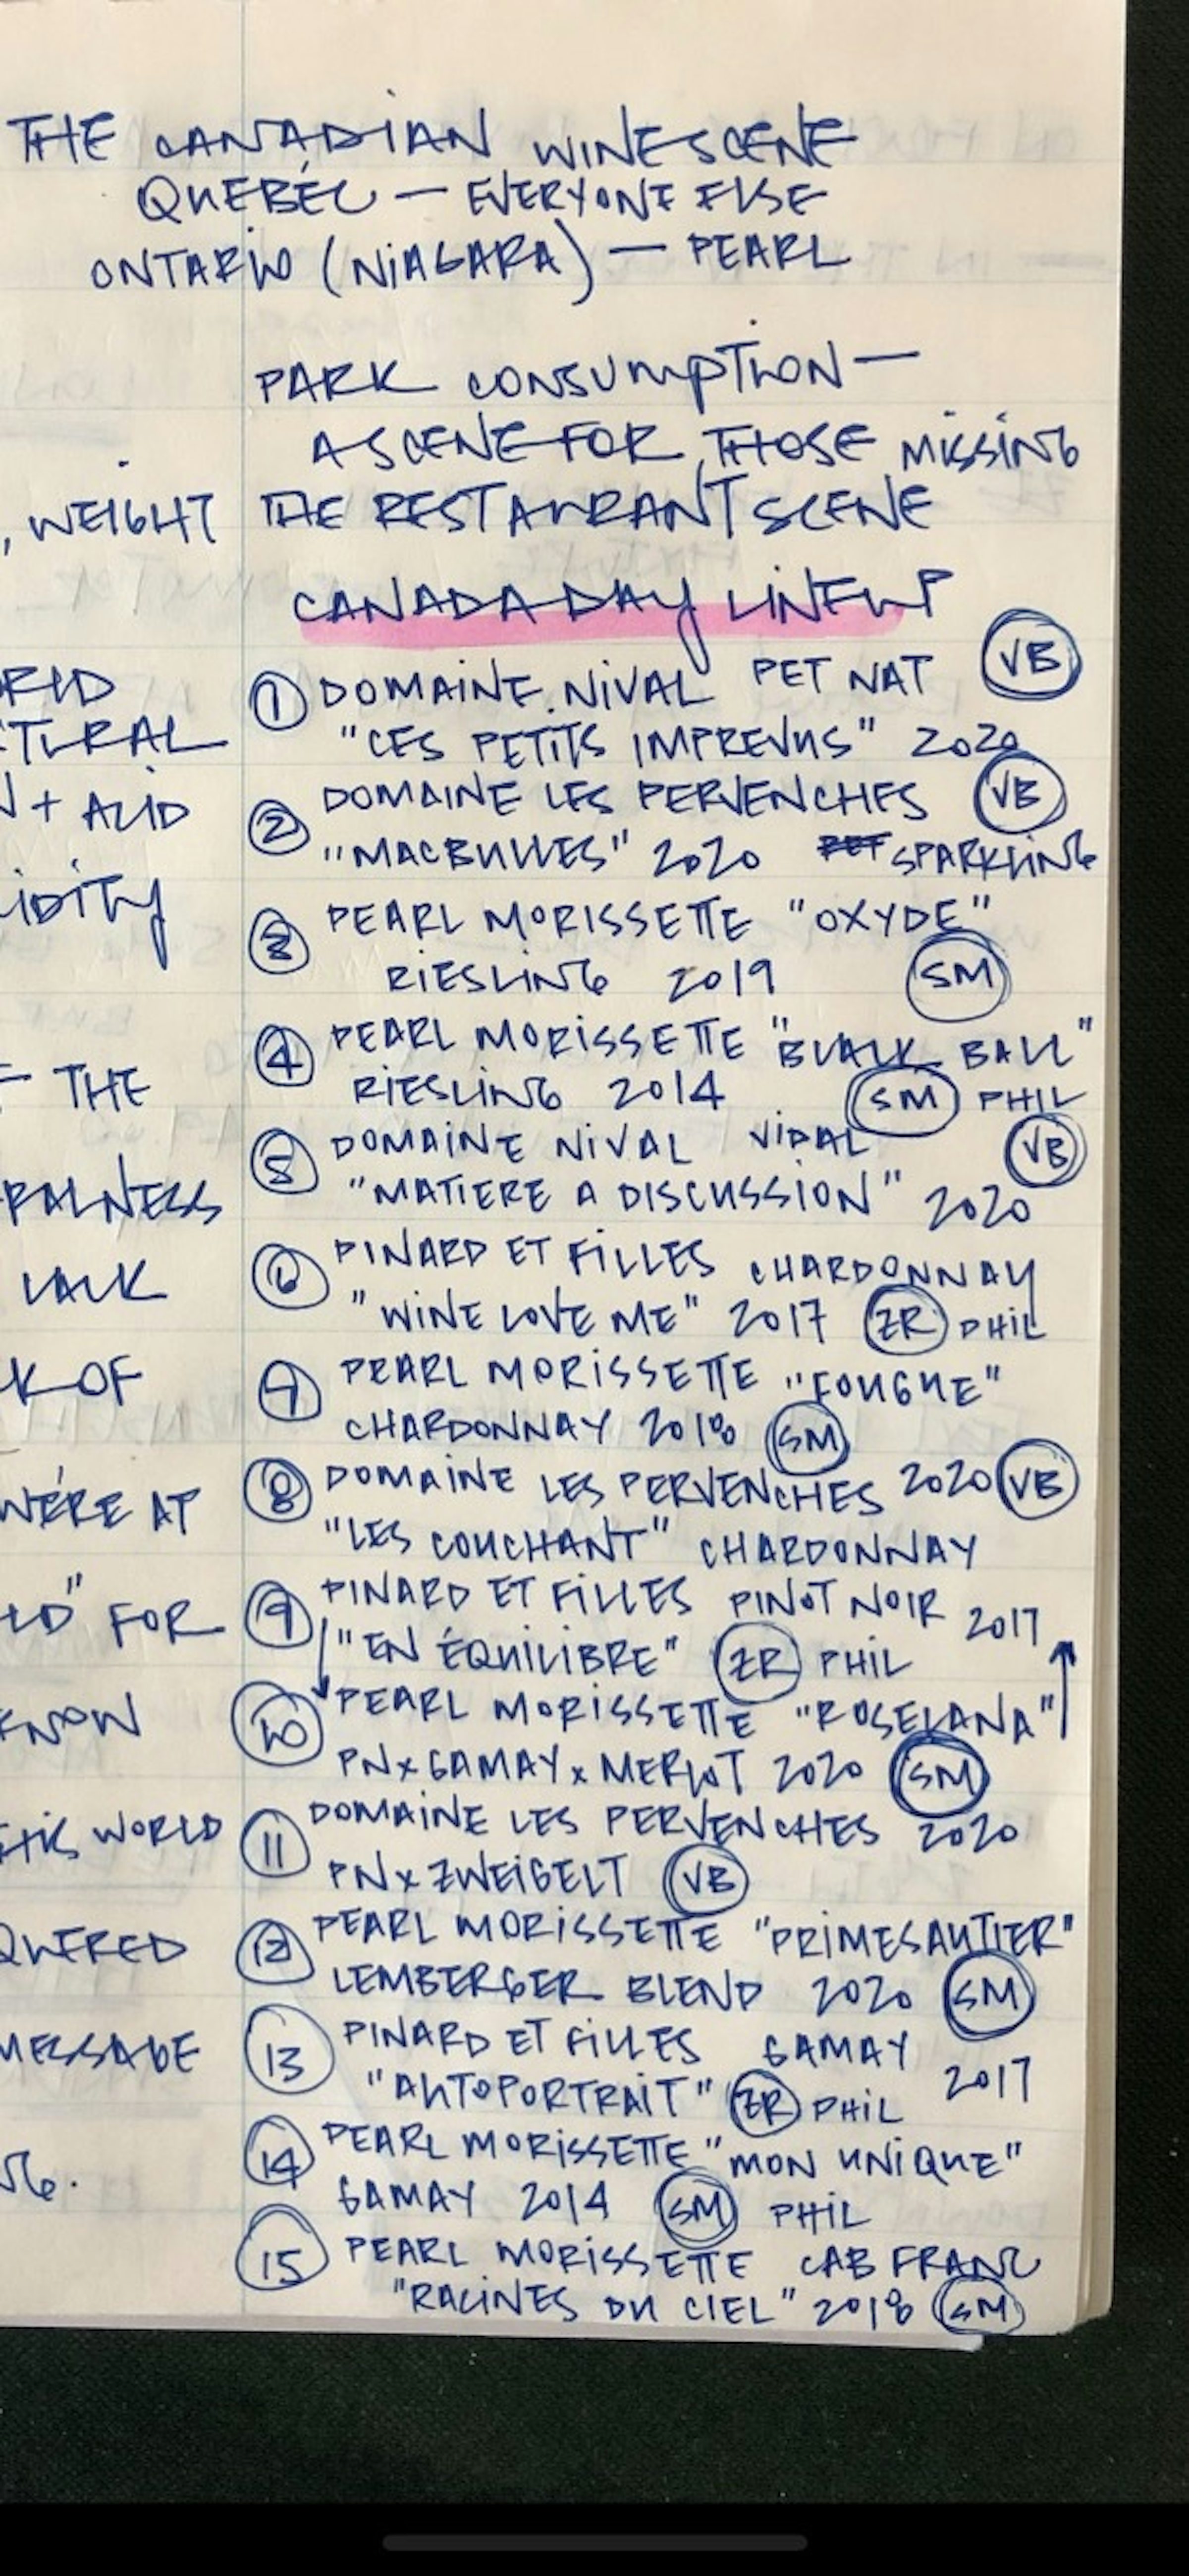 THE CANADIAN WINE SCENE
QUÉBÉC — EVERYONE ELSE
ONTARIO (NIAGARA) — PEARL
PARK CONSUMPTION —
A SCENE FOR THOSE MISSING
, WEIGHT
THE RESTAURANT SCENE
CANADA DAY LINEUP
① DOMAINE NIVAL PET NAT VB
"CES PETITS IMPREVUS" 2020
+ ACID
② DOMAINE LES PERVENCHES VB
"MACBULLES" 2020 SPARKLING
③ PEARL MORISSETTE "OXYDE"
RIESLING 2019 SM
④ PEARL MORISSETTE "BLACK BALL"
THE
RIESLING 2014 SM PHIL
⑤ DOMAINE NIVAL VIDAL VB
"MATIERE A DISCUSSION" 2020
⑥ PINARD ET FILLES CHARDONNAY
LACK
"WINE LOVE ME" 2017 ZR PHIL
⑦ PEARL MORISSETTE "FOUGUE"
OF
CHARDONNAY 2018 SM
⑧ DOMAINE LES PERVENCHES 2020 VB
WERE AT
"LES COUCHANT" CHARDONNAY
⑨ PINARD ET FILLES PINOT NOIR 2017
" FOR
"EN ÉQUILIBRE" ZR PHIL
⑩ PEARL MORISSETTE "ROSELANA"
KNOW
PN x GAMAY x MERLOT 2020 SM
⑪ DOMAINE LES PERVENCHES 2020
THIS WORLD
PN x ZWEIGELT VB
⑫ PEARL MORISSETTE "PRIMESAUTIER"
LEMBERGER BLEND 2020 SM
⑬ PINARD ET FILLES GAMAY 2017
MESSAGE
"AUTOPORTRAIT" ZR PHIL
⑭ PEARL MORISSETTE "MON UNIQUE"
GAMAY 2014 SM PHIL
⑮ PEARL MORISSETTE CAB FRANC
"RACINES DU CIEL" 2018 SM